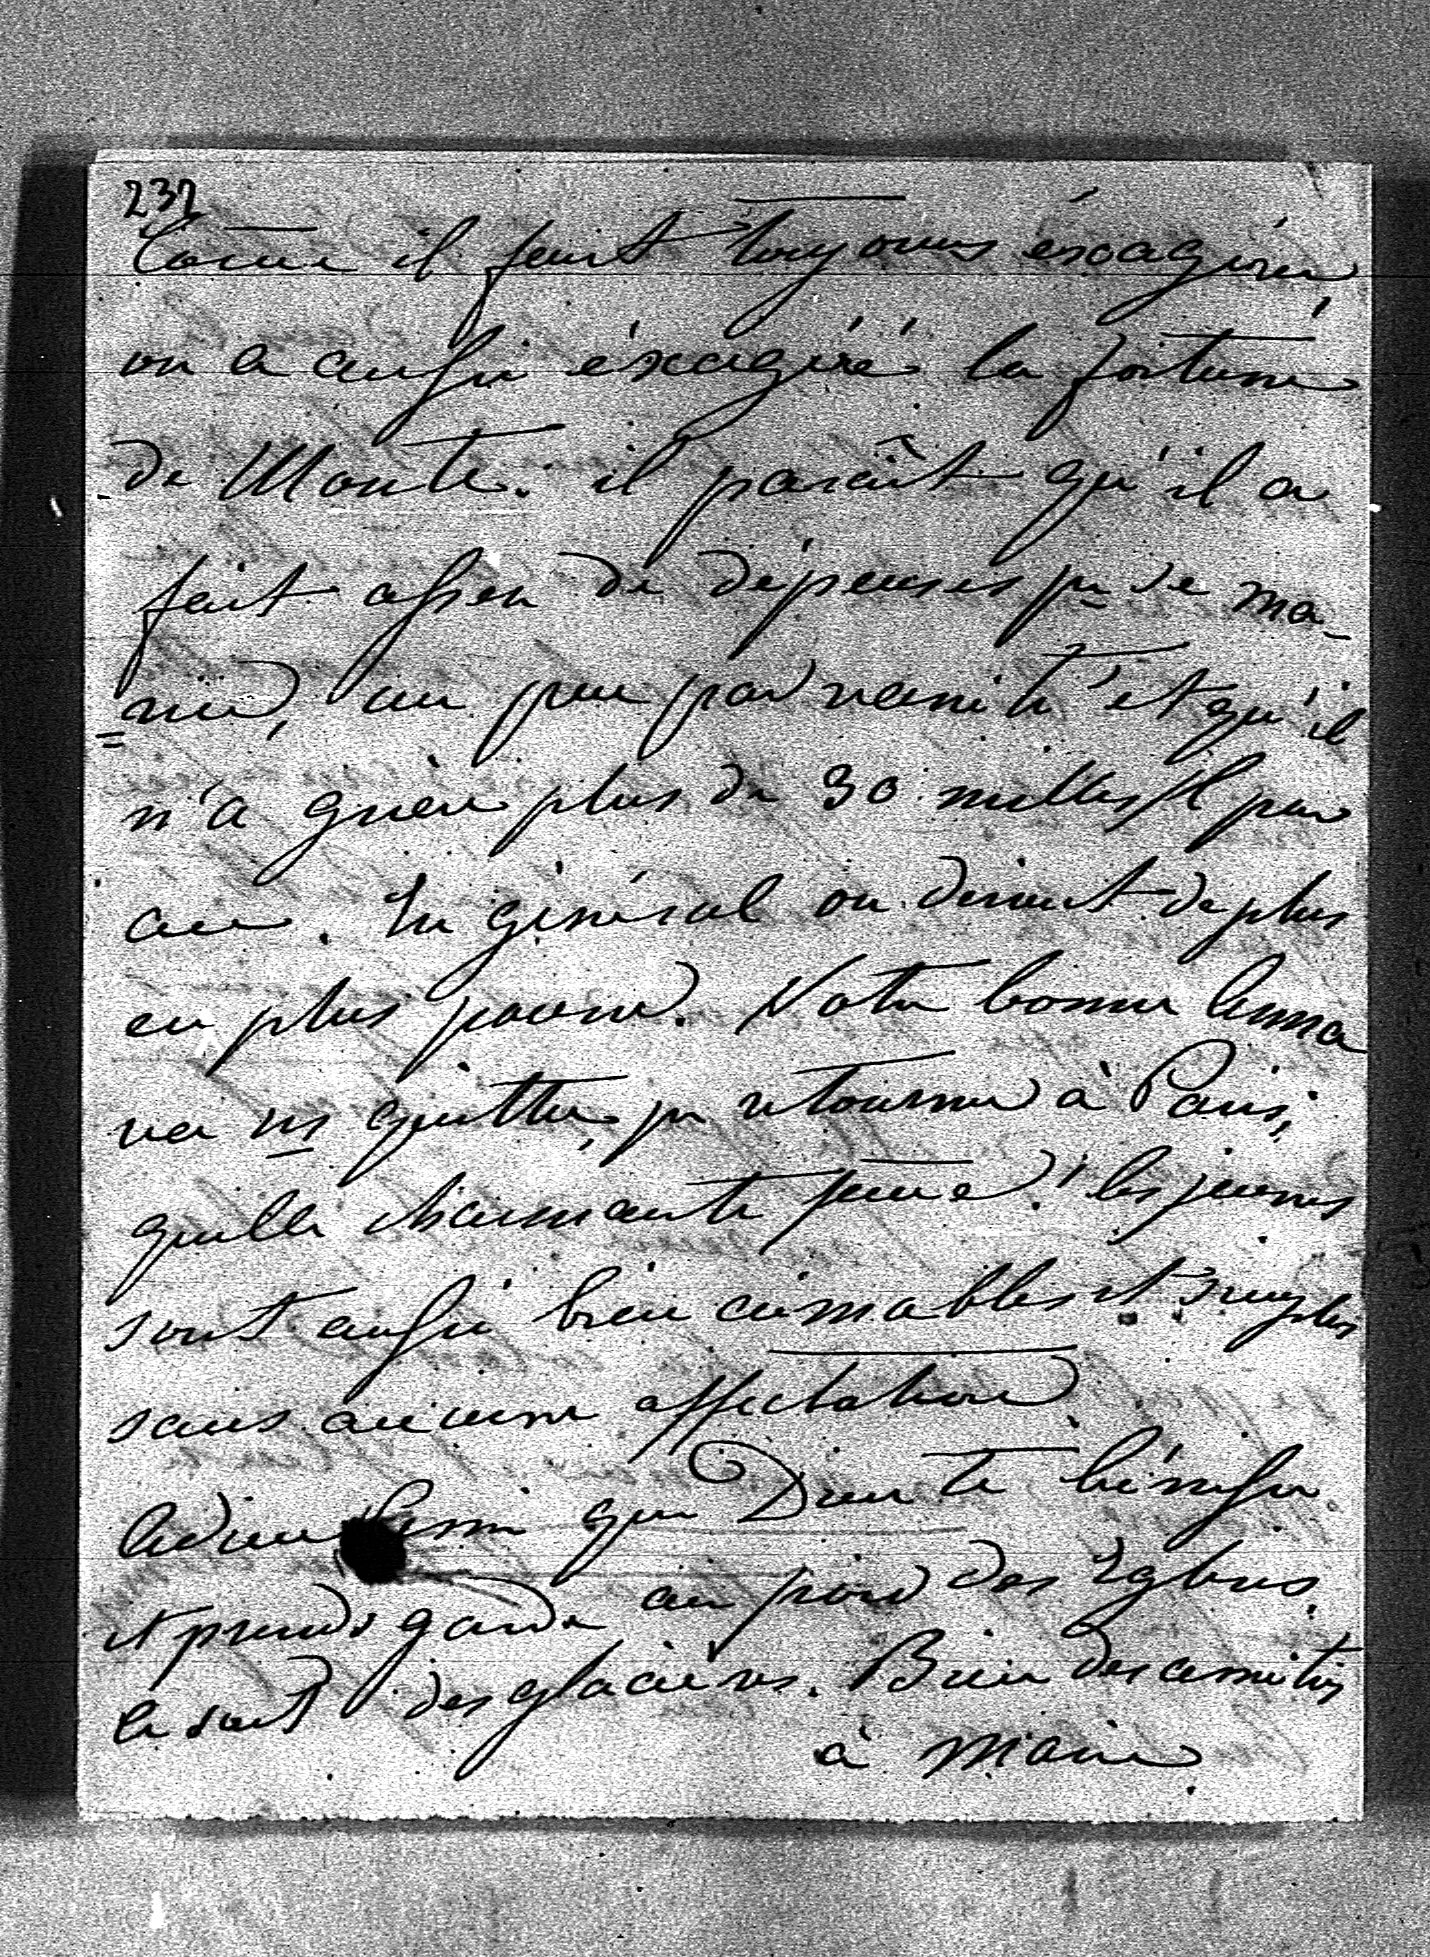 237
Come il faut toujours éxagérer
on a aussi éxagéré la fortune
de Monte. il paraît qu'il a
fait assez de dépenses pr se ma-
=rier, un peu par vanité et qu'il
n'a guère plus de 30 milles fl par
an. En général on devient de plus
en plus pauvre. Notre bonne Anna
va ns quitter, pr retourner à Paris,
quelle charmante femme! les jeunes
sont aussi bien aimables et simples
sans aucune affectation.
Adieu que Dieu te bénisse
et prends garde au froid des Eglises.
ce sont des glacières. Bien des amitiés
à Marie